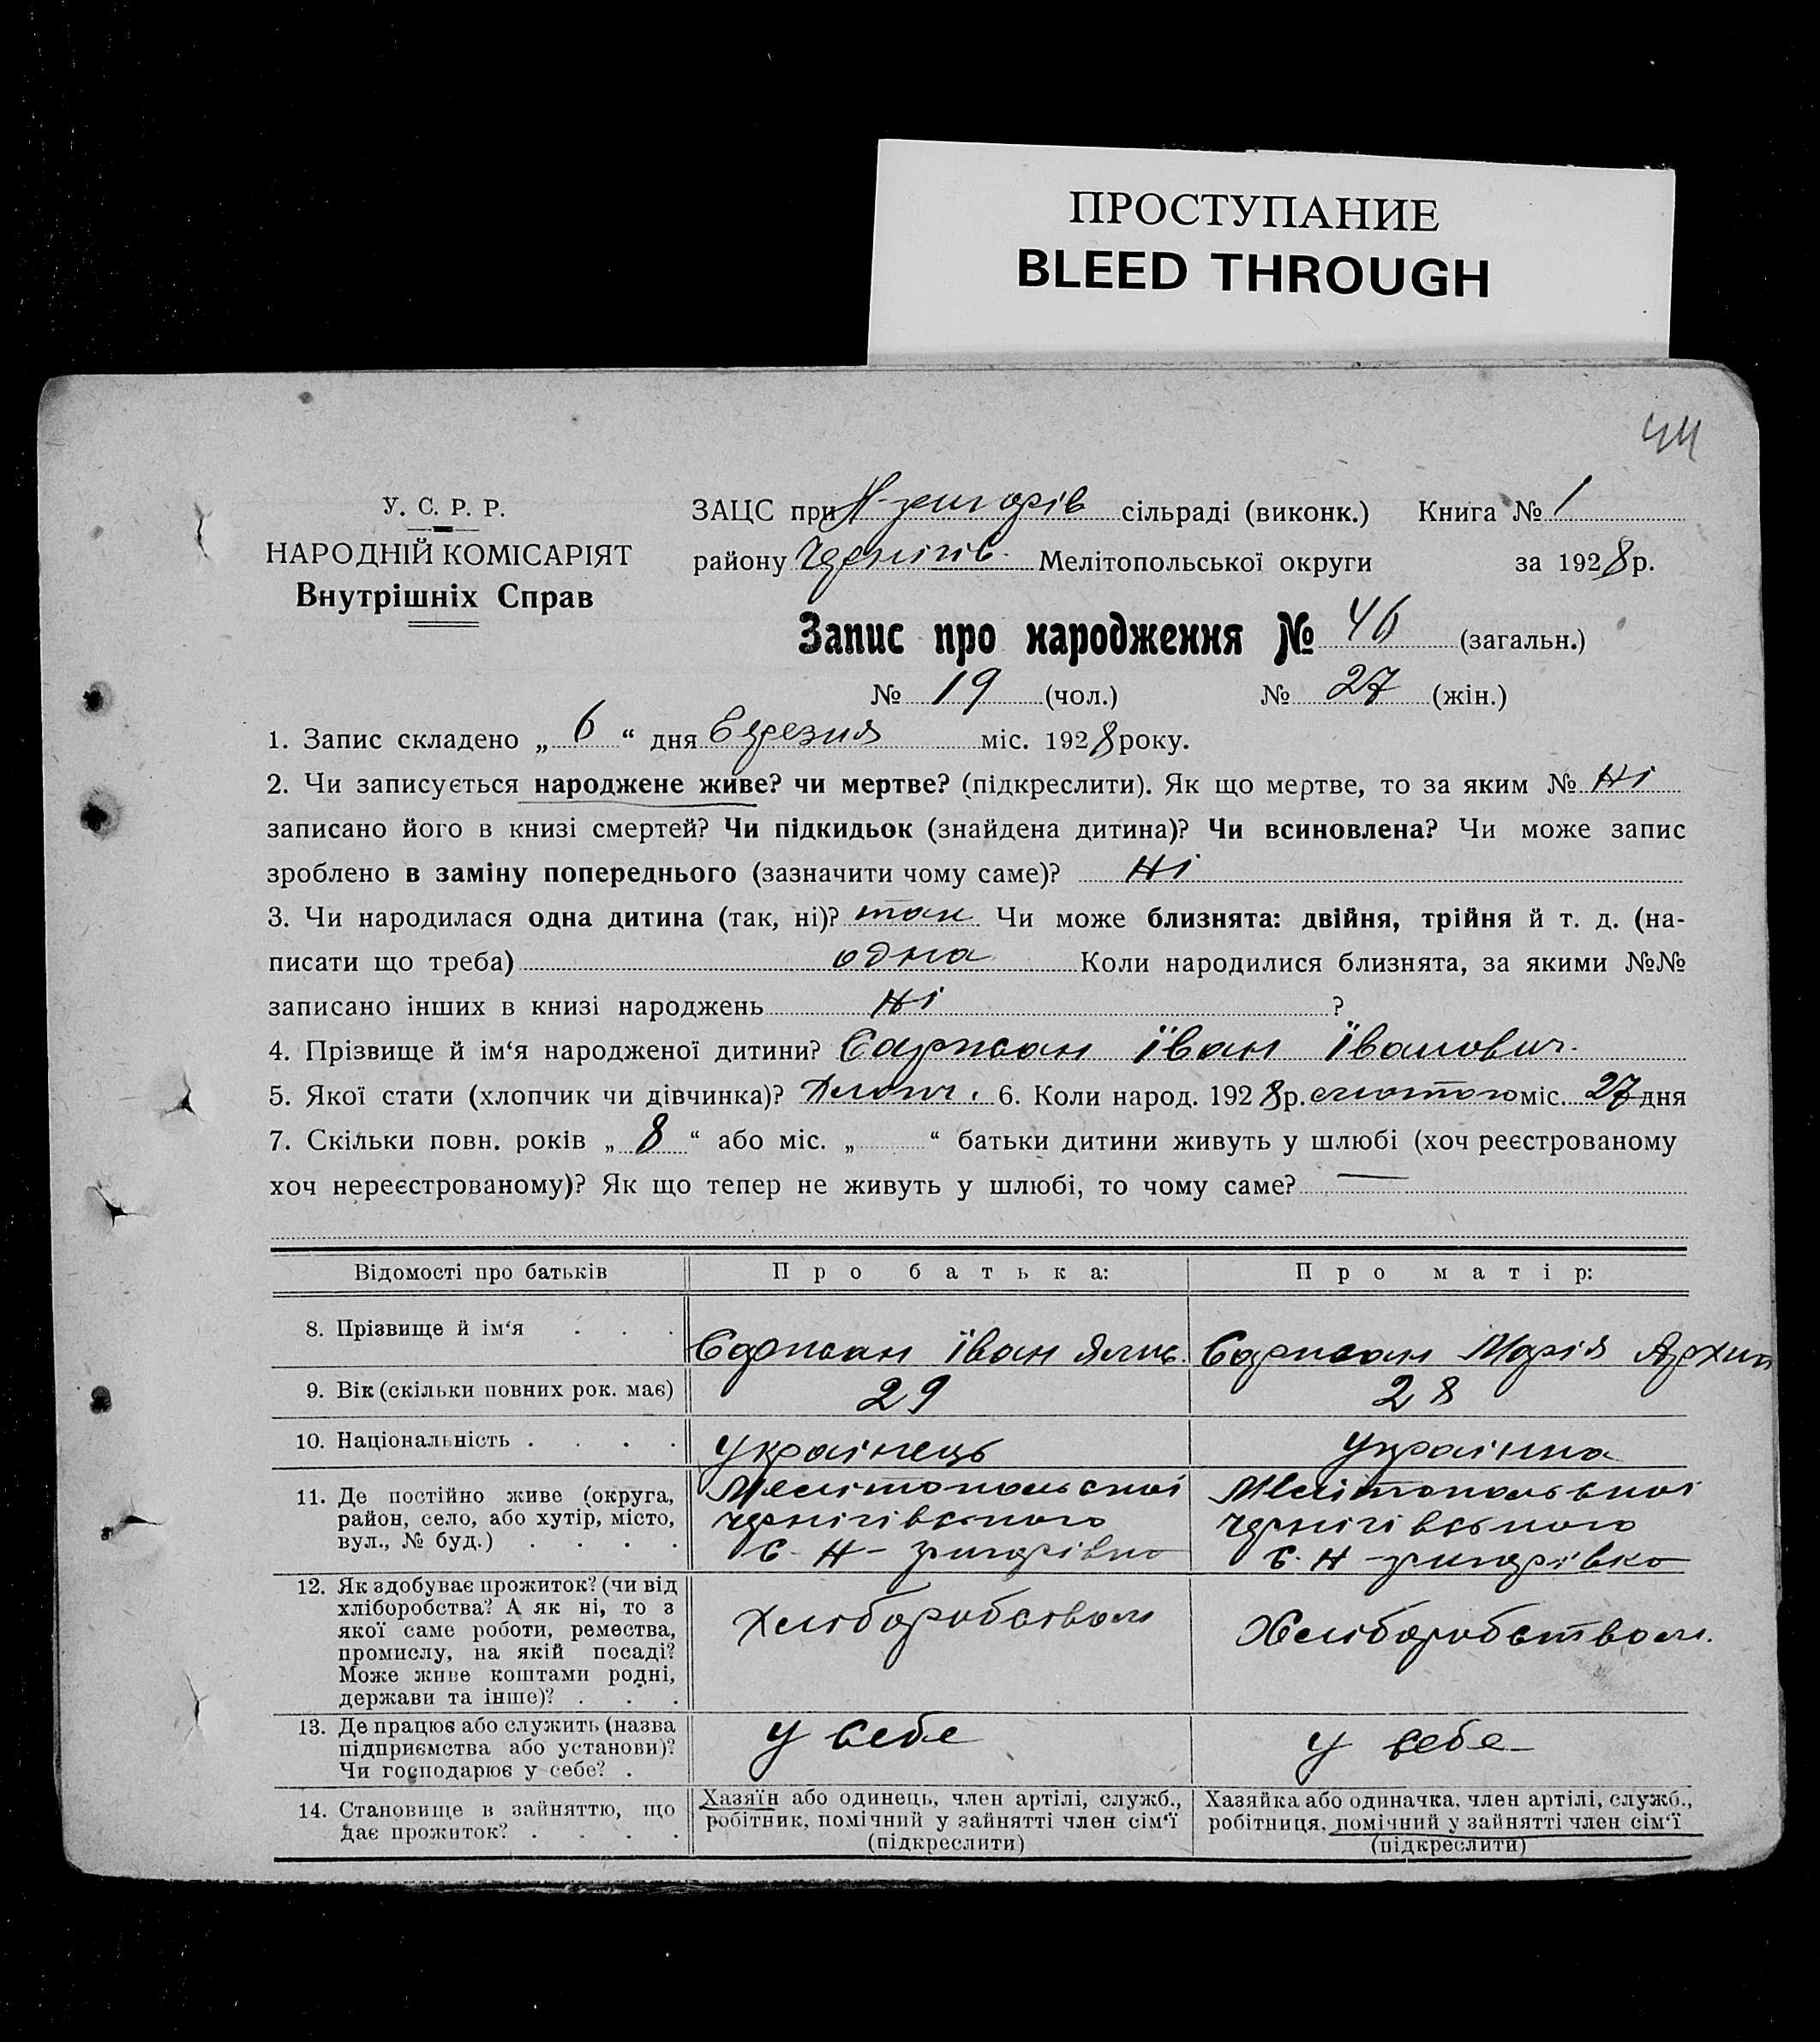 ПРОСТУПАНИЕ
BLEED THROUGH
44
У. С. Р. Р.
НАРОДНІЙ КОМІСАРІЯТ
Внутрішніх Справ
ЗАЦС при сільраді (виконк.) Книга № 1
району Чернігів. Мелітопольської округи за 1928 р.
Запис про народження № 46 (загальн.)
№ 19 (чол.) № 27 (жін.)
1. Запис складено „ 6 “ дня Березня міс. 1928 року.
2. Чи записується народжене живе? чи мертве? (підкреслити). Як що мертве, то за яким № Ні
записано його в книзі смертей? Чи підкидьок (знайдена дитина)? Чи всиновлена? Чи може запис
зроблено в заміну попереднього (зазначити чому саме)? Ні
3. Чи народилася одна дитина (так, ні)? так Чи може близнята: двійня, трійня й т. д. (на-
писати що треба) одна Коли народилися близнята, за якими №№
записано інших в книзі народжень Ні ?
4. Прізвище й ім‘я народженої дитини? Їван Їванович.
5. Якої стати (хлопчик чи дівчинка)? Хлопч. 6. Коли народ. 1928 р. лютого міс. 27 дня
7. Скільки повн. років „ 8 “ або міс. „ “ батьки дитини живуть у шлюбі (хоч реєстрованому
хоч нереєстрованому)? Як що тепер не живуть у шлюбі, то чому саме? —
Відомості про батьків Про батька: Про матір:
8. Прізвище й ім‘я . . . Їван Марія Архип
9. Вік (скільки повних рок. має) 29 28
10. Національність . . . . Українець Українка
11. Де постійно живе (округа, Мелітопольської Мелітопольської
район, село, або хутір, місто, Чернігівського Чернігівського
вул., № буд.) . . . . С. Н- С. Н-
12. Як здобуває прожиток? (чи від
хліборобства? А як ні, то з Хліборобством Хліборобством.
якої саме роботи, ремества,
промислу, на якій посаді?
Може живе коштами родні,
держави та інше)? . . .
13. Де працює або служить (назва у себе у себе
підприємства або установи)?
Чи господарює у себе? .
14. Становище в зайняттю, що Хазяїн або одинець, член артілі, служб., Хазяйка або одиначка, член артілі, служб.,
дає прожиток? . . . . робітник, помічний у зайнятті член сім‘ї робітниця, помічний у зайнятті член сім‘ї
(підкреслити) (підкреслити)